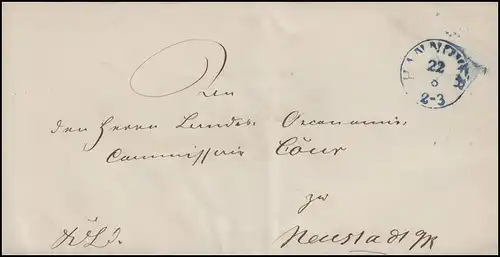 HANNOVER
22
2-3
Den
den Herrn Landes-Oeconomie-
Commissair Cöur
zu
Neustadt a/R